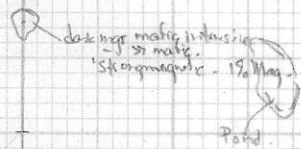 dark mgr mafic intrusive
mafic.
strongmagnetic - 1% Mag.
Pond.